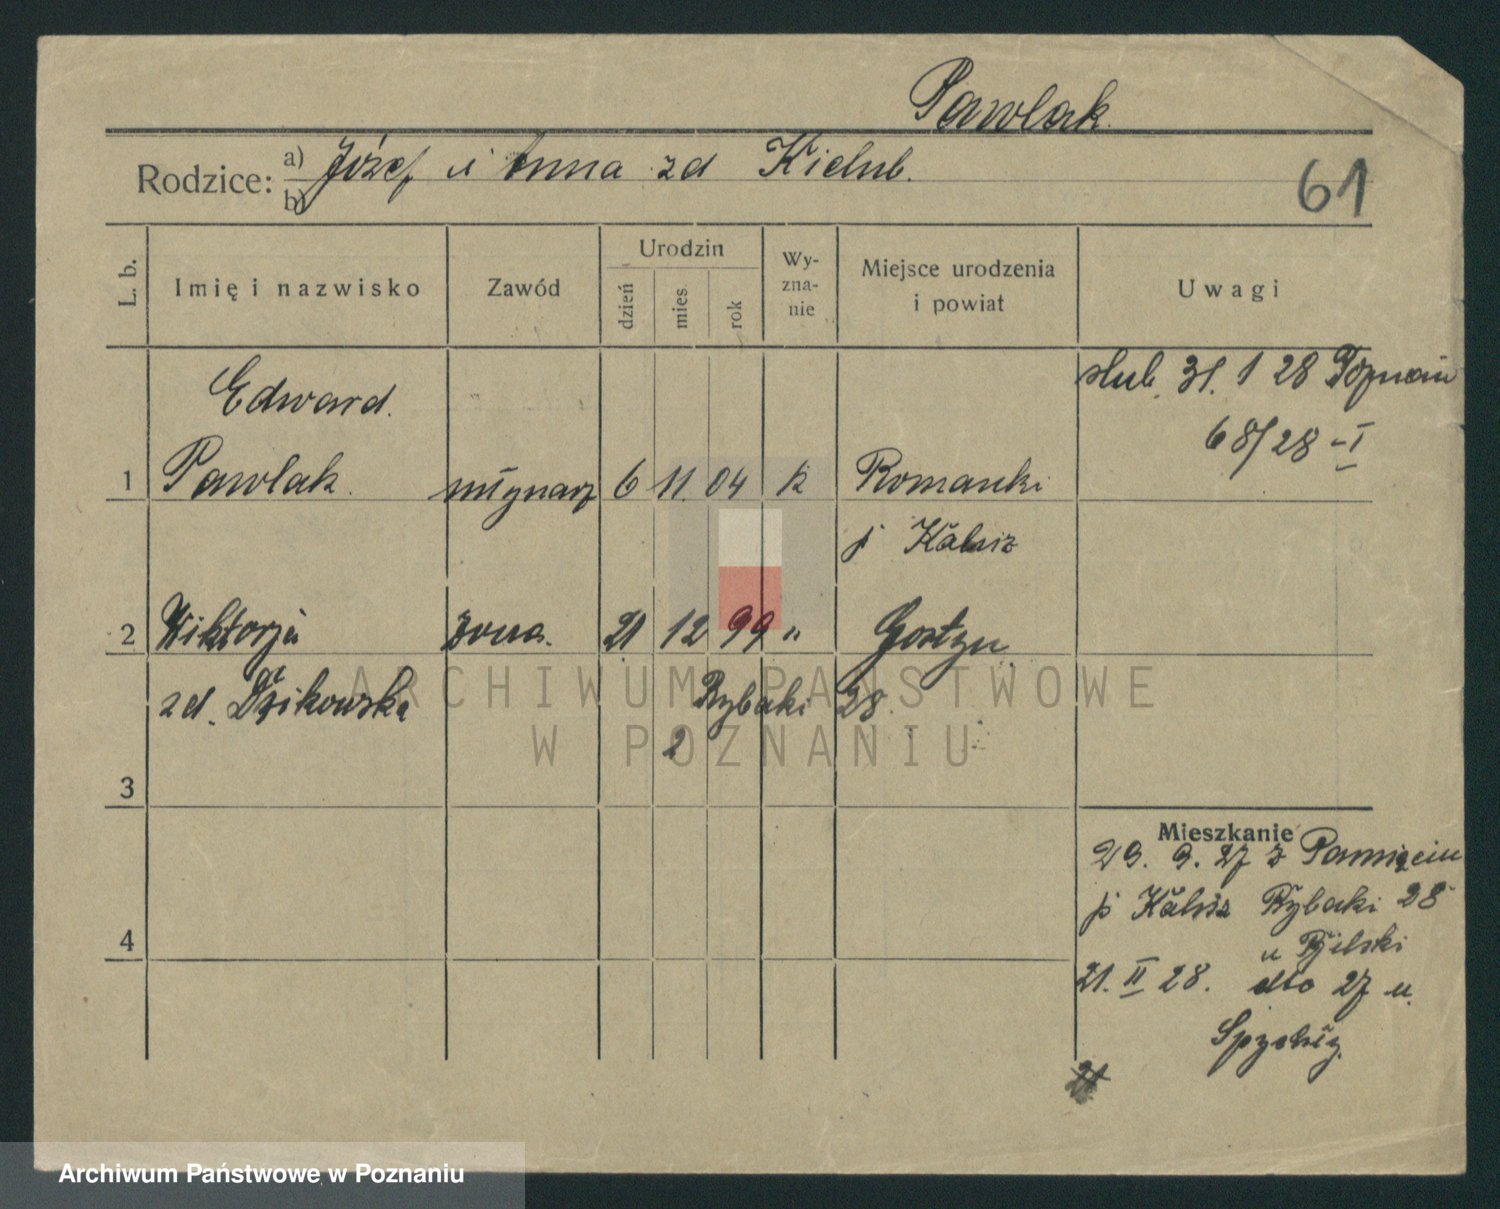 Pawlak
Rodzice: a) Józef i Anna zd Kielub.
b)
61
L. b.
Imię i nazwisko
Zawód
Urodzin
dzień
mies
rok
Wy-
zna-
nie
Miejsce urodzenia
i powiat
Uwagi
ślub. 31. 1 28 Poznań
68/28 -I
Edward.
1 Pawlak młynarz 6 11 04 k Romanki
p Kalisz
2 Wiktorja żona. 21 12 99 " Gostyn
zd. Dzikowska Rybaki 28.
2
3
4
Mieszkanie
29. 9. 27 z Pamięcin
p Kalisz Rybaki 28
u
21. II 28. dto 27 u.
ARCHIWUM PAŃSTWOWE
W POZNANIU
Archiwum Państwowe w Poznaniu